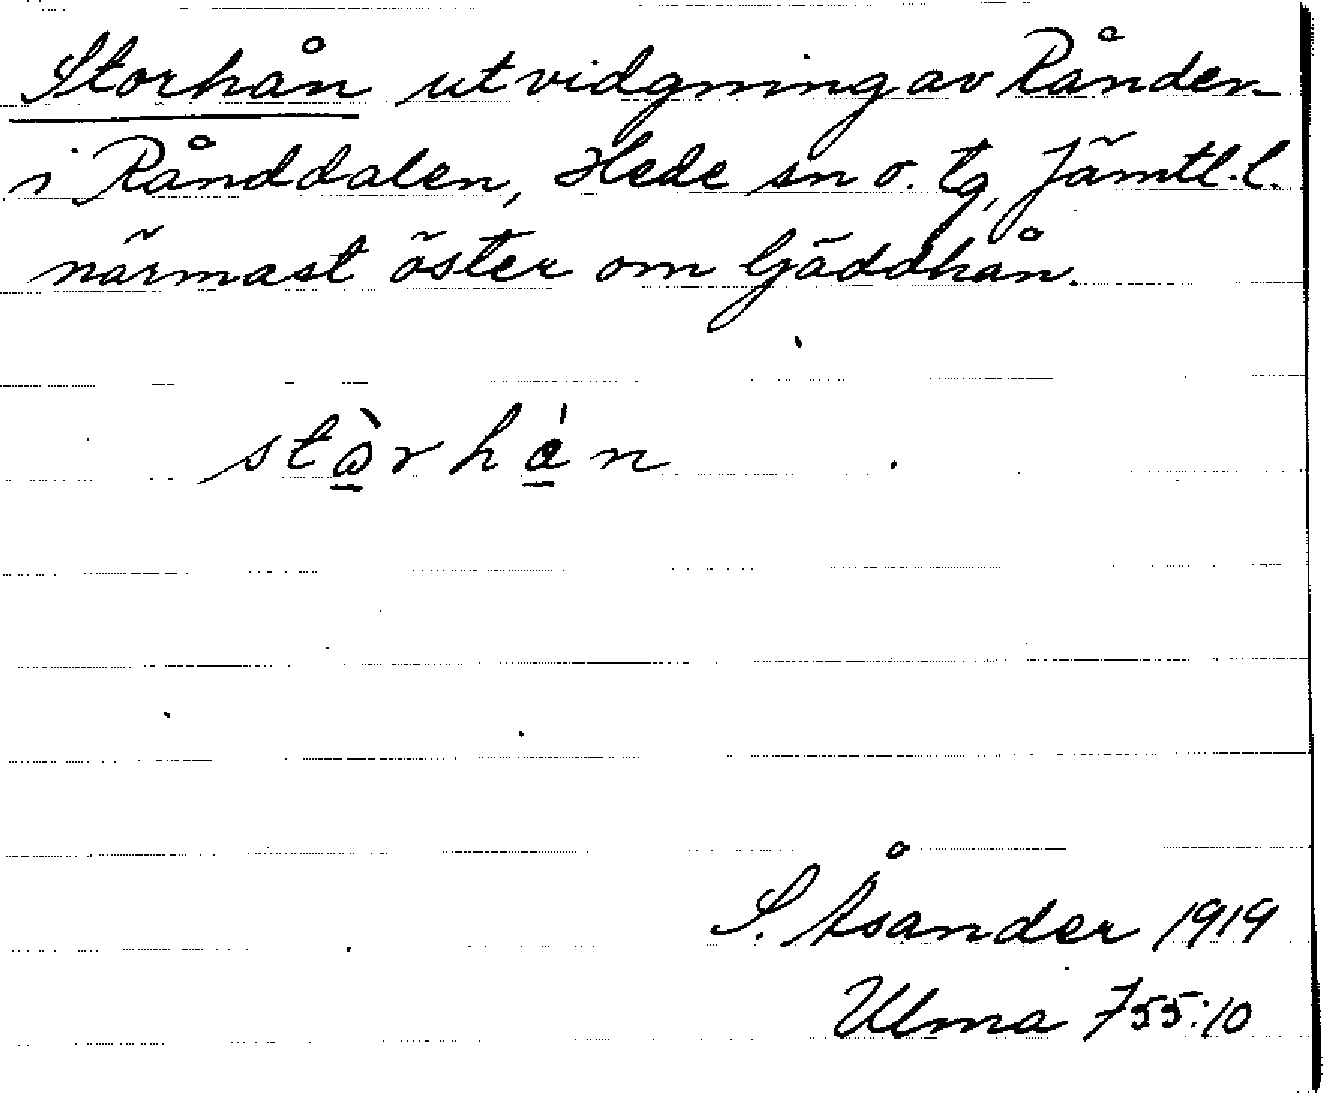 Storhån utvidgning av Rånden
i Rånddalen, Hede sn o. tg, Jämtl. l.
närmast öster om Gäddhån.
stὼrhán
S. Åsander 1919
Ulma 755:10